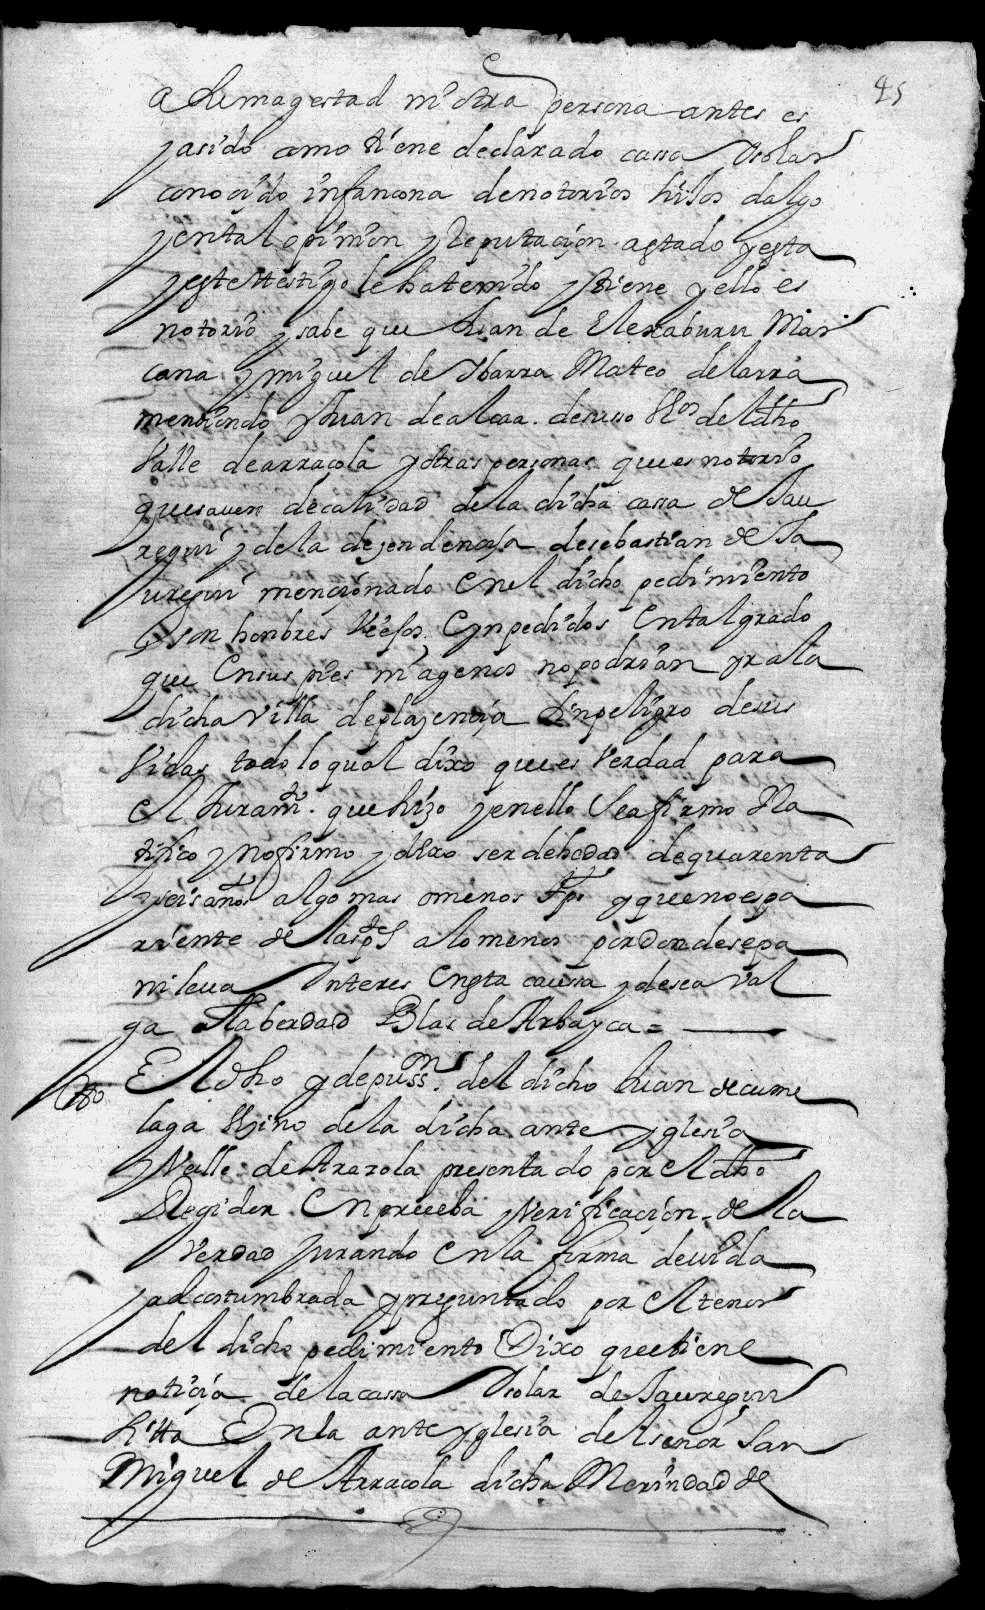 45
a su magestad ni otra persona antes es
y asido como tiene declarado cassa solar
conocido infançona de notorios hijos dalgo
y en tal opinion y Reputaçion a estado y esta
y este testigo le ha tenido y tiene y ello es
notorio y sabe que Juan de Elexaburu Mar
cana y miguel de Ybarra Mateo de larra
mendi y Juan de alcaa de Vzos del dho
Valle de arracola y otras personas que es notorio
que sauen de calidad de la dicha cassa de Jau
regui y de la dezendencia de sebastian de Ja
uregui mençionado en el dicho pedimiento
son honbres Viejos ynpedidos en tal grado
que en sus pies ni agenos no podrian yr a la
dicha Villa de plazençia sin peligro de sus
Vidas todo lo qual dixo que es Verdad para
el Juramto. que hizo y en ello se afirmo Ra
tifico y no firmo y dixo ser de hedad de quarenta
y seis años algo mas o menos tpo y que no es pa
riente de las ptes a lo menos por donde sepa
ni leua ynteres en esta caussa y desea Val
ga la berdad Blas de Arbayça =
tgo El dho y depussn. del dicho Juan de cume
laga Vzino de la dicha ante yglesia
y Valle de Arazola presentado por el dho
Regidor en prueba y Verificaçion de la
Verdad Jurando en la forma deuida
y adcostumbrada y preguntado por el tenor
del dicho pedimiento Dixo que tiene
notiçia de la cassa solar de Jauregui
sita En la ante yglesia del señor San
Miguel de Arracola dicha Merindad de